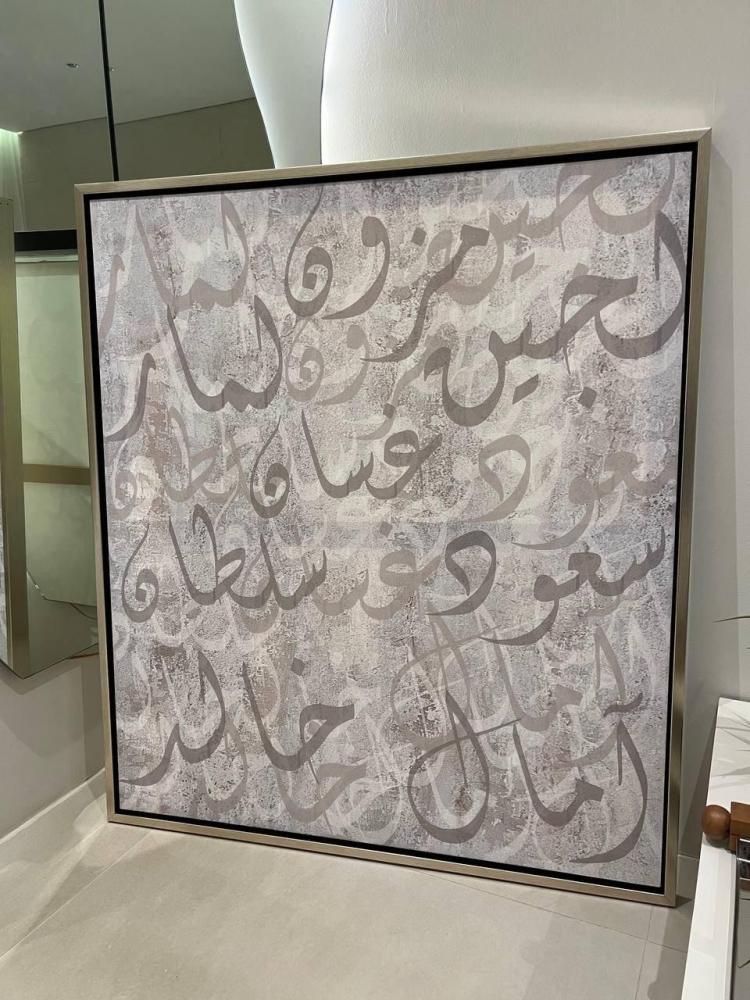 لجين مزون لمار
غسان
سعود سلطان
آمال خالد